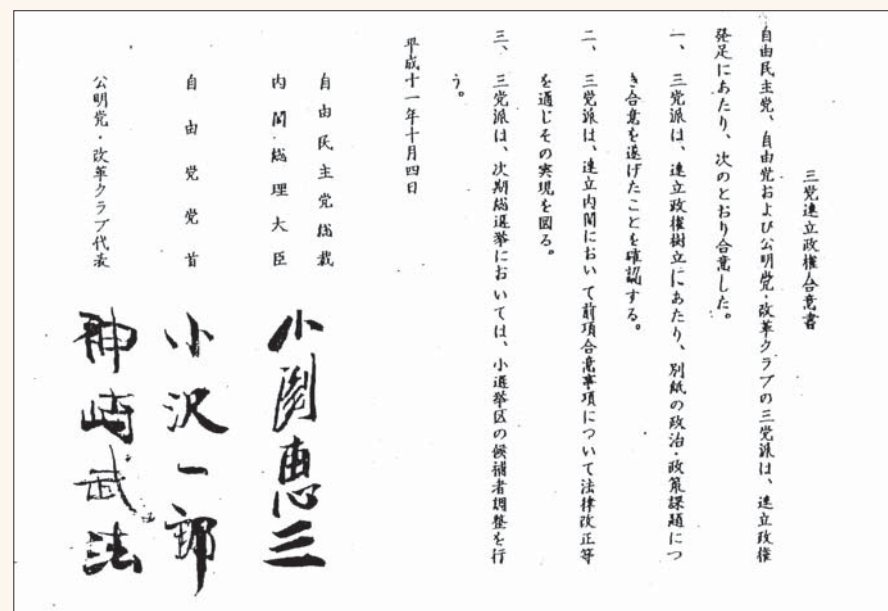 三党連立政権合意書
自由民主党、自由党および公明党・改革クラブの三党派は、連立政権
発足にあたり、次のとおり合意した。
一、三党派は、連立政権樹立にあたり、別紙の政治・政策課題につ
き合意を遂げたことを確認する。
二、三党派は、連立内閣において前項合意事項について法律改正等
を通じその実現を図る。
三、三党派は、次期総選挙においては、小選挙区の候補者調整を行
う。
平成十一年十月四日
自由民主党総裁
内閣総理大臣 小渕恵三
自由党党首 小沢一郎
公明党・改革クラブ代表 神崎武法